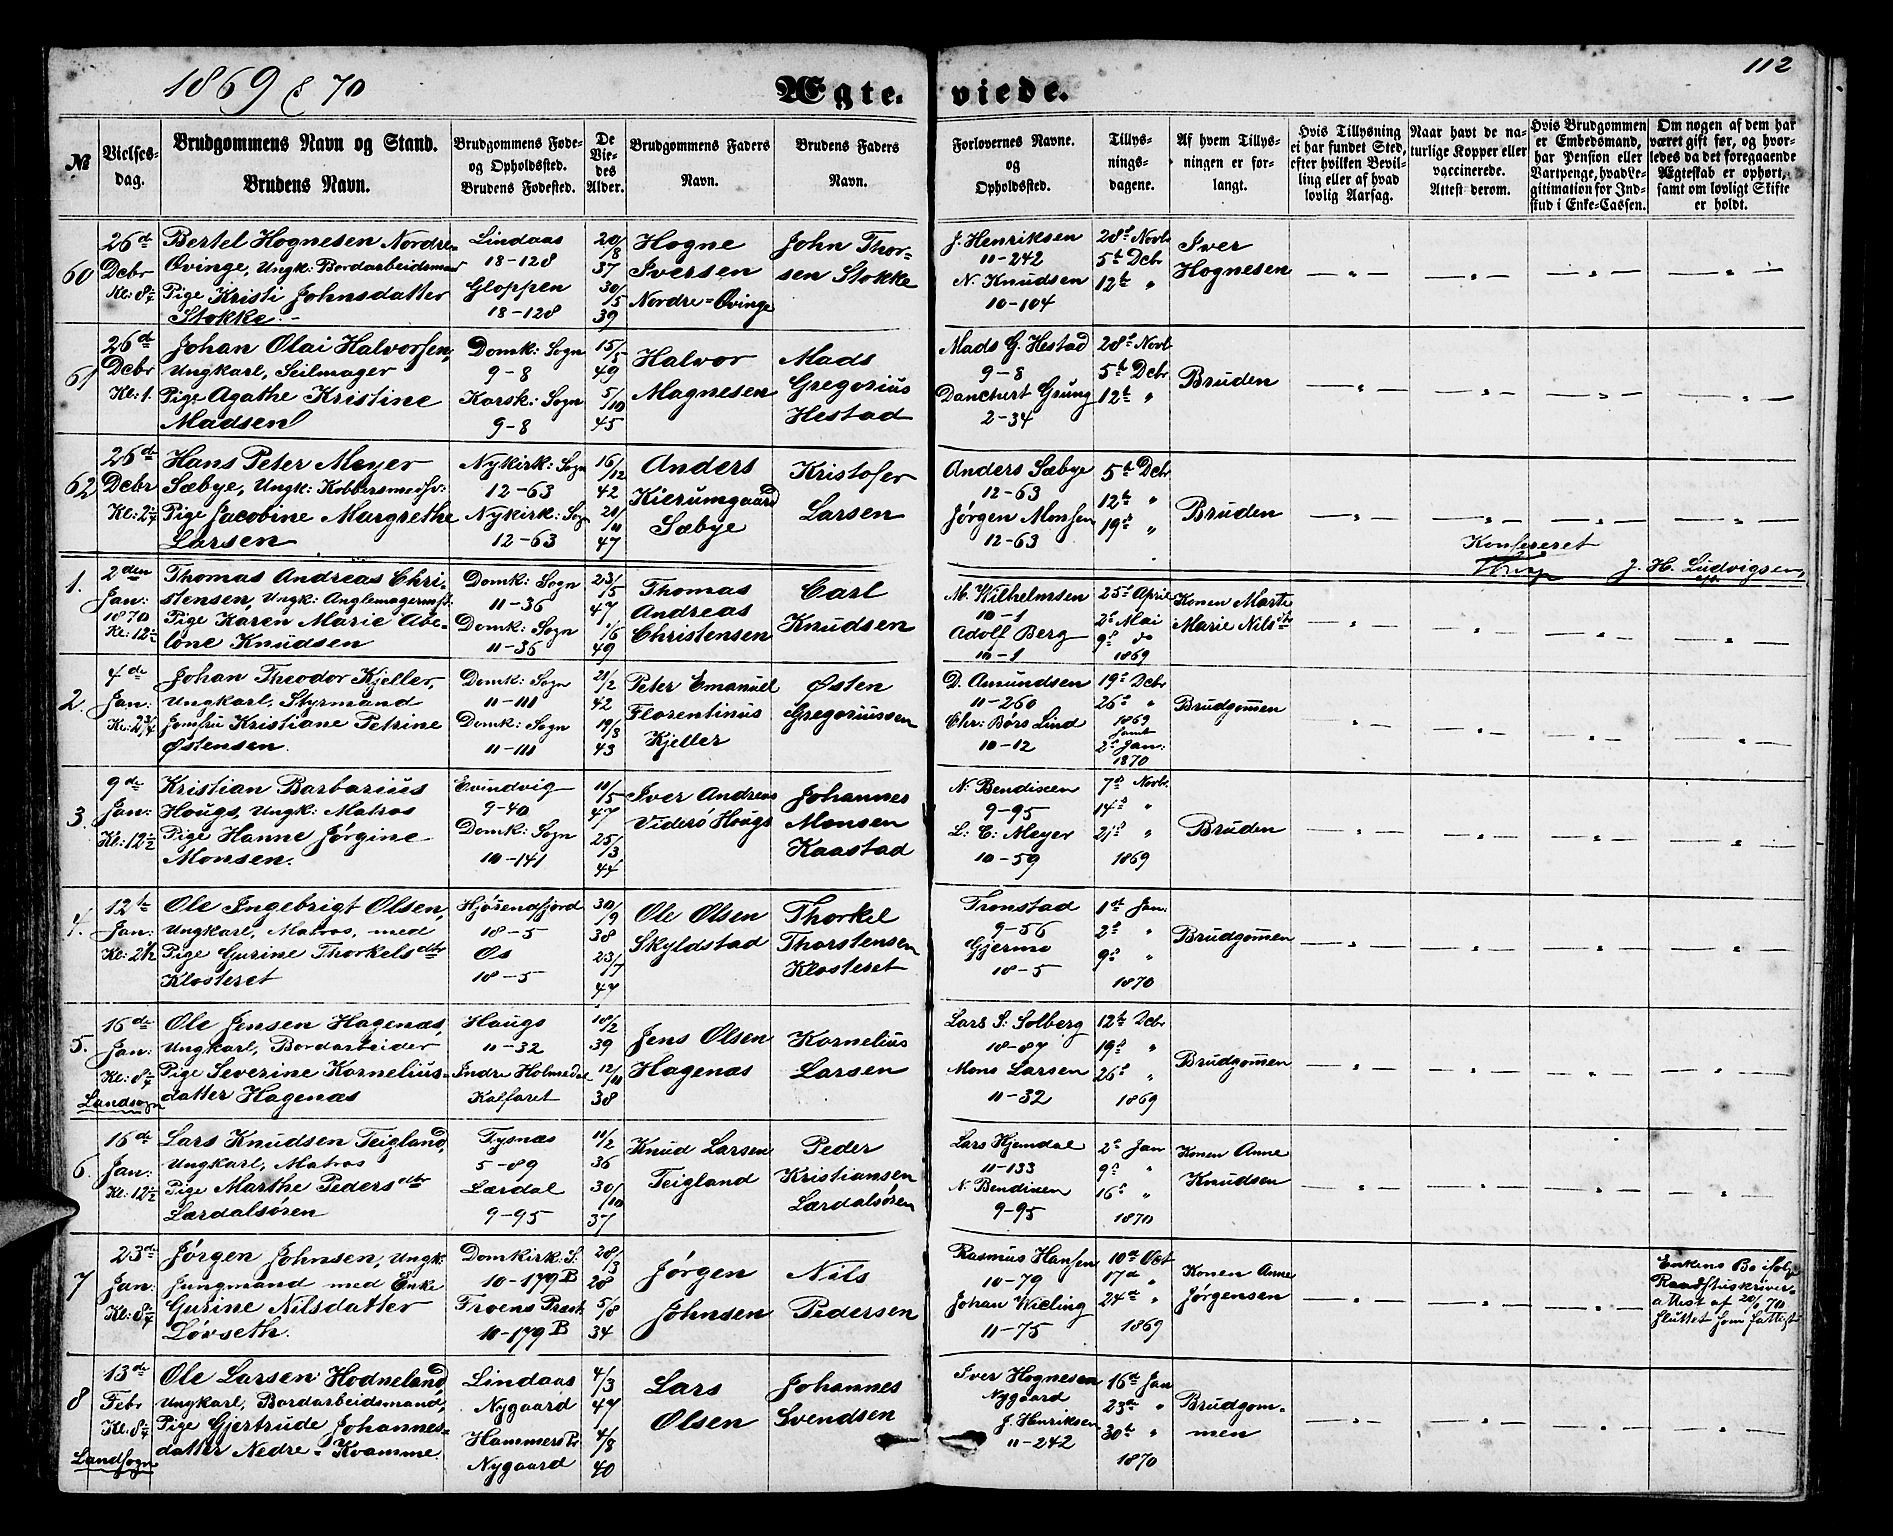 1869 & 70
Ægteviede.
112
№
Vielsesdag.
Brudgommens Navn og Stand.
Brudens Navn.
Brudgommens Føde-
og Opholdssted.
Brudens Fødested.
De
Vie-
des
Alder.
Brudgommens Faders
Navn.
Brudens Faders
Navn.
Forlovernes Navne.
og
Opholdssted.
Tillys-
nings-
dagene.
Af hvem Tillys-
ningen er for-
langt.
Hvis Tillysning
ei har fundet Sted,
efter hvilken Bevil-
ling eller af hvad
lovlig Aarsag.
Naar havt de na-
turlige Kopper eller
vaccinerede.
Attest derom.
Hvis Brudgommen
er Embedsmand,
har Pension eller
Vartpenge, hvad Le-
gitimation for Ind-
skud i Enke-Cassen.
Om nogen af dem har
været gift før, og hvor-
ledes da det foregaaende
Ægteskab er ophørt,
samt om lovligt Skifte
er holdt.
60
26de
Dcbr
Bertel Hognesen Nordre-
Øvinge, Ungk: Bordarbeidsmand
Pige Kristi Johnsdatter
Stokke.
Lindaas
18-128
Gloppen
18-128
20/8
37
30/5
39
Hogne
Iversen
Nordre-Øvinge
John Thor-
sen Stokke
J. Henriksen
11-242
N. Knudsen
10-104
28d Novb
5te Dcbr
12te "
Iver
Hognesen
61
26de
Dcbr
Kl: 1.
Johan Olai Halvorsen,
Ungkarl, Seilmager
Pige Agathe Kristine
Madsen
Domk: Sogn
9-8
Korsk: Sogn
9-8
15/5
49
5/10
45
Halvor
Magnesen
Mads
Gregorius
Hestad
Mads G. Hestad
9-8
Danchert Grung
2-34
28d Novb
5te Dcbr
12te "
Bruden
62
26de
Dcbr
Hans Peter Meyer
Sæbye, Ungk: Kobbersmedsv:
Pige Jacobine Margrethe
Larsen
Nykirk: Sogn
12-63
Nykirk: Sogn
12-63
16/12
42
21/11
47
Anders
Kierumgaard
Sæbye
Kristofer
Larsen
Anders Sæbye
12-63
Jørgen Monsen
12-63
5te Dcbr
12te "
19de "
Bruden
Konfereret
J. H. Ludvigsen,
1.
2den
Jan:
1870
Thomas Andreas Chri-
stensen, Ungk: Anglemagermst:
Pige Karen Marie Abe-
lone Knudsen
Domk: Sogn
11-36
Domk: Sogn
11-36
23/5
47
1/6
49
Thomas
Andreas
Christensen
Carl
Knudsen
M. Wilhelmsen
10-1
Adolf Berg
10-1
25d April
2d Mai
9d do
1869
Konen Marte
Marie Nilsdtr
2.
4de
Jan:
Kl: 2¾
Johan Theodor Kjeller,
Ungkarl, Styrmand
Jomfru Kristiane Petrine
Østensen.
Domk: Sogn
11-111
Domk: Sogn
11-111
21/2
42
19/3
43
Peter Emanuel
Florentinus
Kjeller
Østen
Gregoriussen
D. Amundsen
11-260
Chr: Børs Lind
10-12
19d Dcbr
26d "
1869
samt
2d Jan:
1870
Brudgommen
3.
9de
Jan:
Kristian Barbarius
Hougs, Ungk: Matros
Pige Hanne Jørgine
Monsen.
Evindvig
9-40
Domk: Sogn
10-141
11/5
47
25/3
44
Iver Andreas
Viderö Hougs
Johannes
Monsen
Kaastad
N. Bendixen
9-95
L: C: Meyer
10-59
7d Novb.
14d "
21d "
1869
Bruden
4.
12te
Jan:
Kl: 2½
Ole Ingebrigt Olsen,
Ungkarl, Matros, med
Pige Gurine Thorkelsdtr
Klosteret
Hjørendfjord
18-5
Os
18-5
30/9
38
23/7
47
Ole Olsen
Skyldstad
Thorkel
Thorstensen
Klosteret
Tronstad
9-56
Gjermo
18-5
1st Jan:
2d "
9d "
1870
Brudgommen
5.
16de
Jan:
Landsogn
Ole Jensen Hagenæs,
Ungkarl, Bordarbeider
Pige Severine Kornelius-
datter Hagenæs
Haugs
11-32
Indre Holmedal
Kalfaret
18/2
39
12/11
38
Jens Olsen
Hagenæs
Kornelius
Larsen
Lars S: Solberg
18-87
Mons Larsen
11-32
12te Dcbr
19d "
26d "
1869
Brudgommen
6.
16de
Jan:
Lars Knudsen Teigland,
Ungkarl, Matros
Pige Marthe Pedersdtr
Lærdalsøren
Tysnæs
5-89
Lærdal
9-95
11/2
36
30/10
37
Knud Larsen
Teigland
Peder
Kristiansen
Lærdalsøren
Lars Hjemdal
11-133
N. Bendixen
9-95
2d Jan
9d "
16d "
1870
Konen Anne
Knudsen
7
23de
Jan:
Jørgen Johnsen, Ungk:
Jungmand med Enke
Gurine Nilsdatter
Løvseth.
Domkirk: S.
10-179 B
Froens Præst.
10-179 B
28/3
28
5/8
34
Jørgen
Johnsen
Nils
Pedersen
Rasmus Hansen
10-79
Johan Wieling
11-75
10de Oct
17de "
24de "
1869
Konen Anne
Jørgensen
Enkens Bo ifølge
Raadstuskriver-
attest af 20/1 70
sluttet som fattigt
8
13de
Febr
Landsogn
Ole Larsen Hodneland,
Ungkarl, Bordarbeidsmand,
Pige Gjertrude Johannes-
datter Nedre-Kvamme.
Lindaas
Nygaard
Hammers Pr
Nygaard
4/3
47
4/8
40
Lars
Olsen
Johannes
Svendsen
Iver Hognesen
Nygaard
J. Henriksen
11-242
16de Jan
23de "
30te "
1870
Brudgom-
men